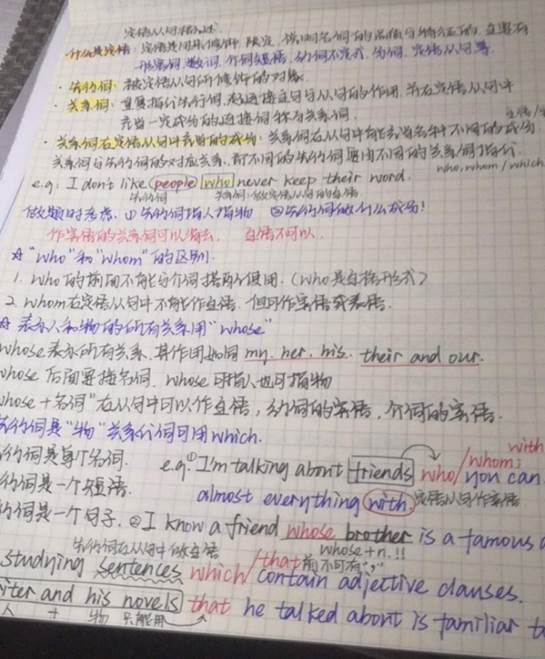 定语从句概述
什么是定语：定语是用来修饰、限定、说明名词的品质与特征的，主要有
形容词、数词、介词短语、动词不定式、分词、定语从句等.
· 先行词：被定语从句所修饰的对象.
· 关系词：重复指代先行词，起连接主句与从句的作用，并在定语从句中
充当一定成分的连接词称为关系词.
主语/
· 关系词在定语从句中充当的成分：关系词在从句中
关系词与先行词的对应关系，不同的先行词要由不同的关系词指代.
who, whom / which
e.g: I don't like people who never keep their word.
先行词
做题时考虑：①先行词指人指物 ②先行词做什么成分！
作宾语的关系词可以省去. 主语不可以.
☆ "who"和"whom"的区别.
1. who的前面不能与介词搭配使用.（who是主格形式）
2. whom在定语从句中不能作主语，但可作宾语或表语.
☆ 表示人和物的所有关系用"whose"
whose表示所有关系，其作用如同 my. her. his. their and our.
whose 后面要接名词. whose可指人也可指物
whose + 名词"在从句中可以作主语，动词的宾语，介词的宾语.
先行词是"物"关系代词可用which.
with
行词是每个名词. e.g.①I'm talking about friends who/whom; you can
行词是一个短语. almost everything with. 定语从句作宾语
行词是一个句子. ②I know a friend whose brother is a famous
先行词在从句中做主语 whose+n. !!
studying sentences which/that contain adjective clauses.
前不可有","
iter and his novels that he talked about is familiar t
人 + 物 只能用